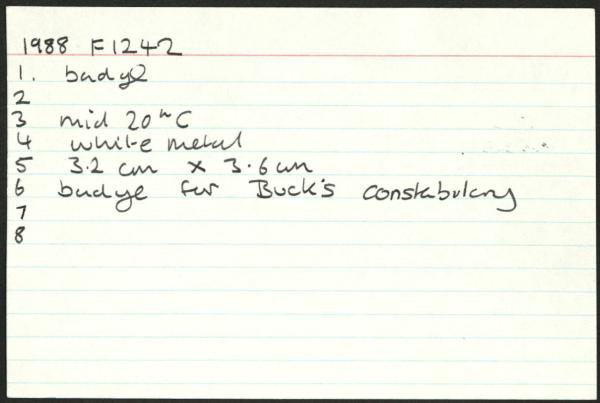 1988 F1242
1. badge
2
3 mid 20th C
4 white metal
5 3.2 cm x 3.6 cm
6 badge for Buck's constabulary
7
8